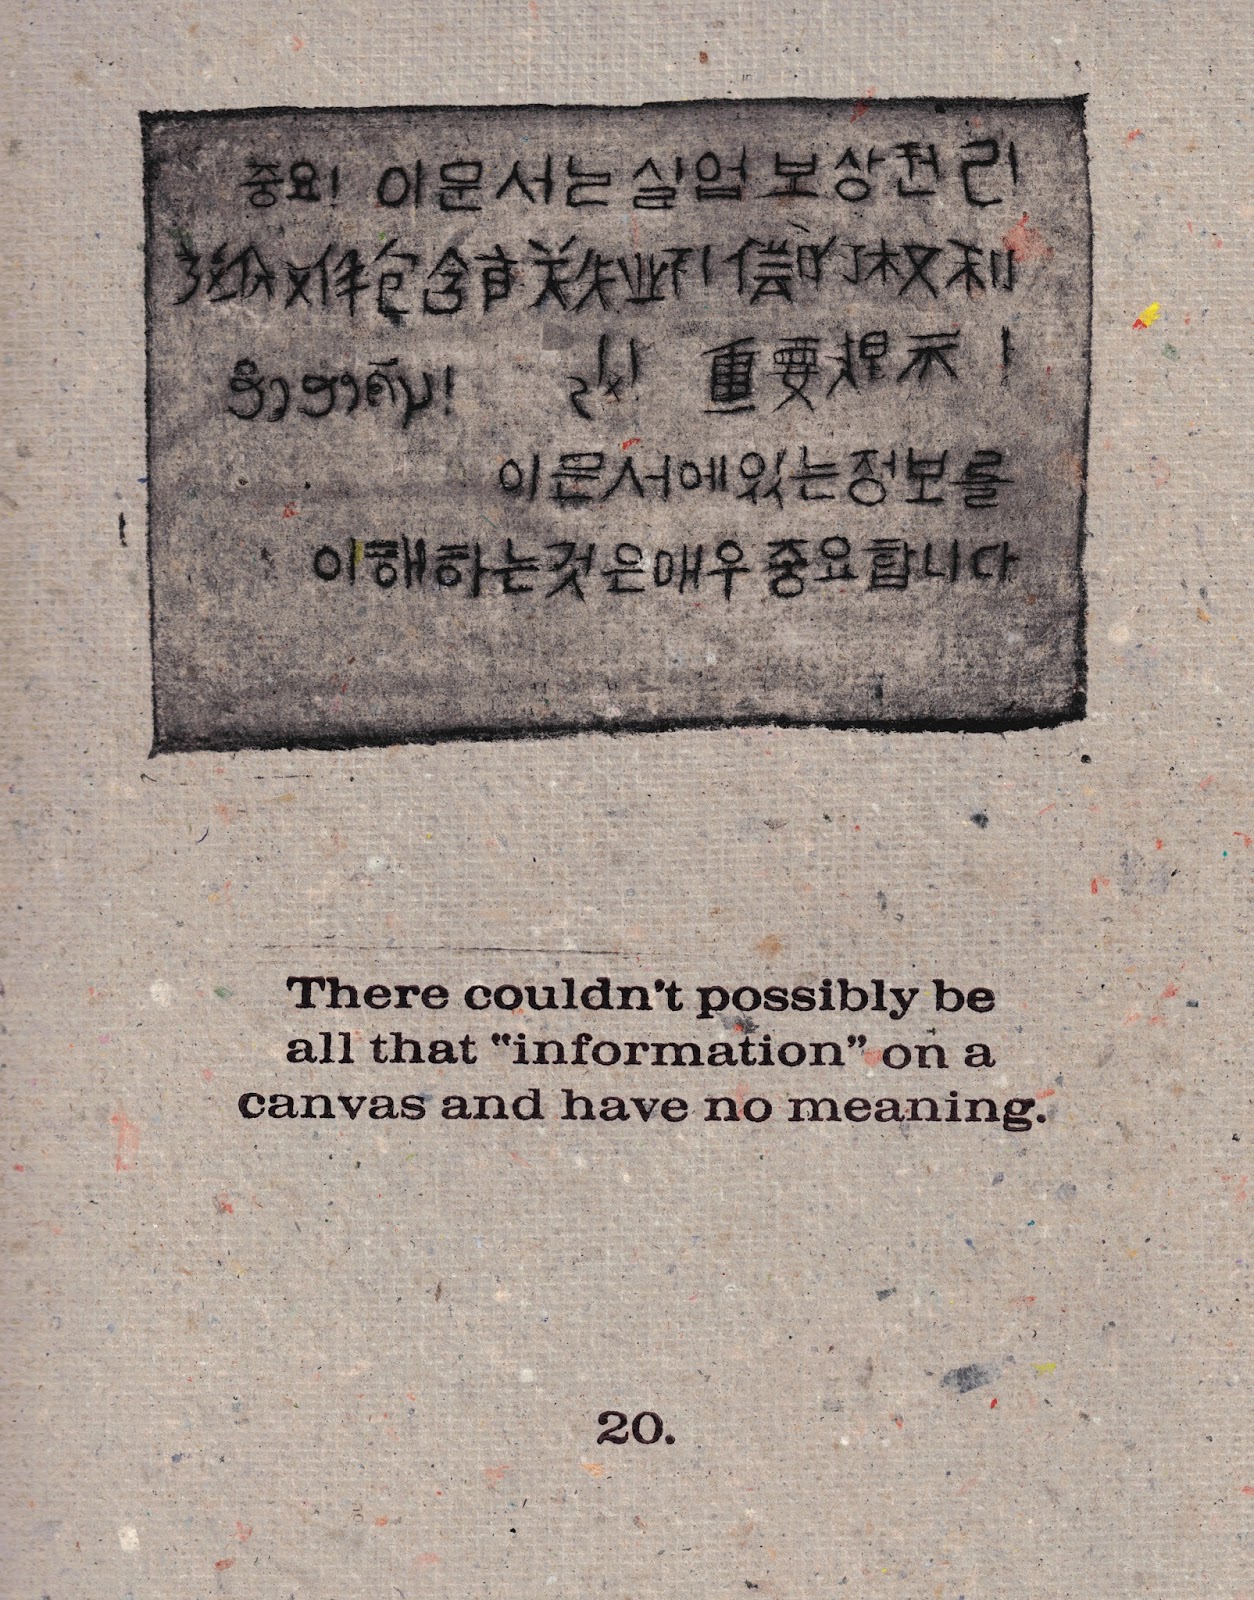 중요! 이문서는실업 보상권리
这份文件包含有关失业补偿的权利
重要提示！
이문서에있는정보를
이해하는것은매우 중요합니다
There couldn't possibly be
all that “information” on a
canvas and have no meaning.
20.